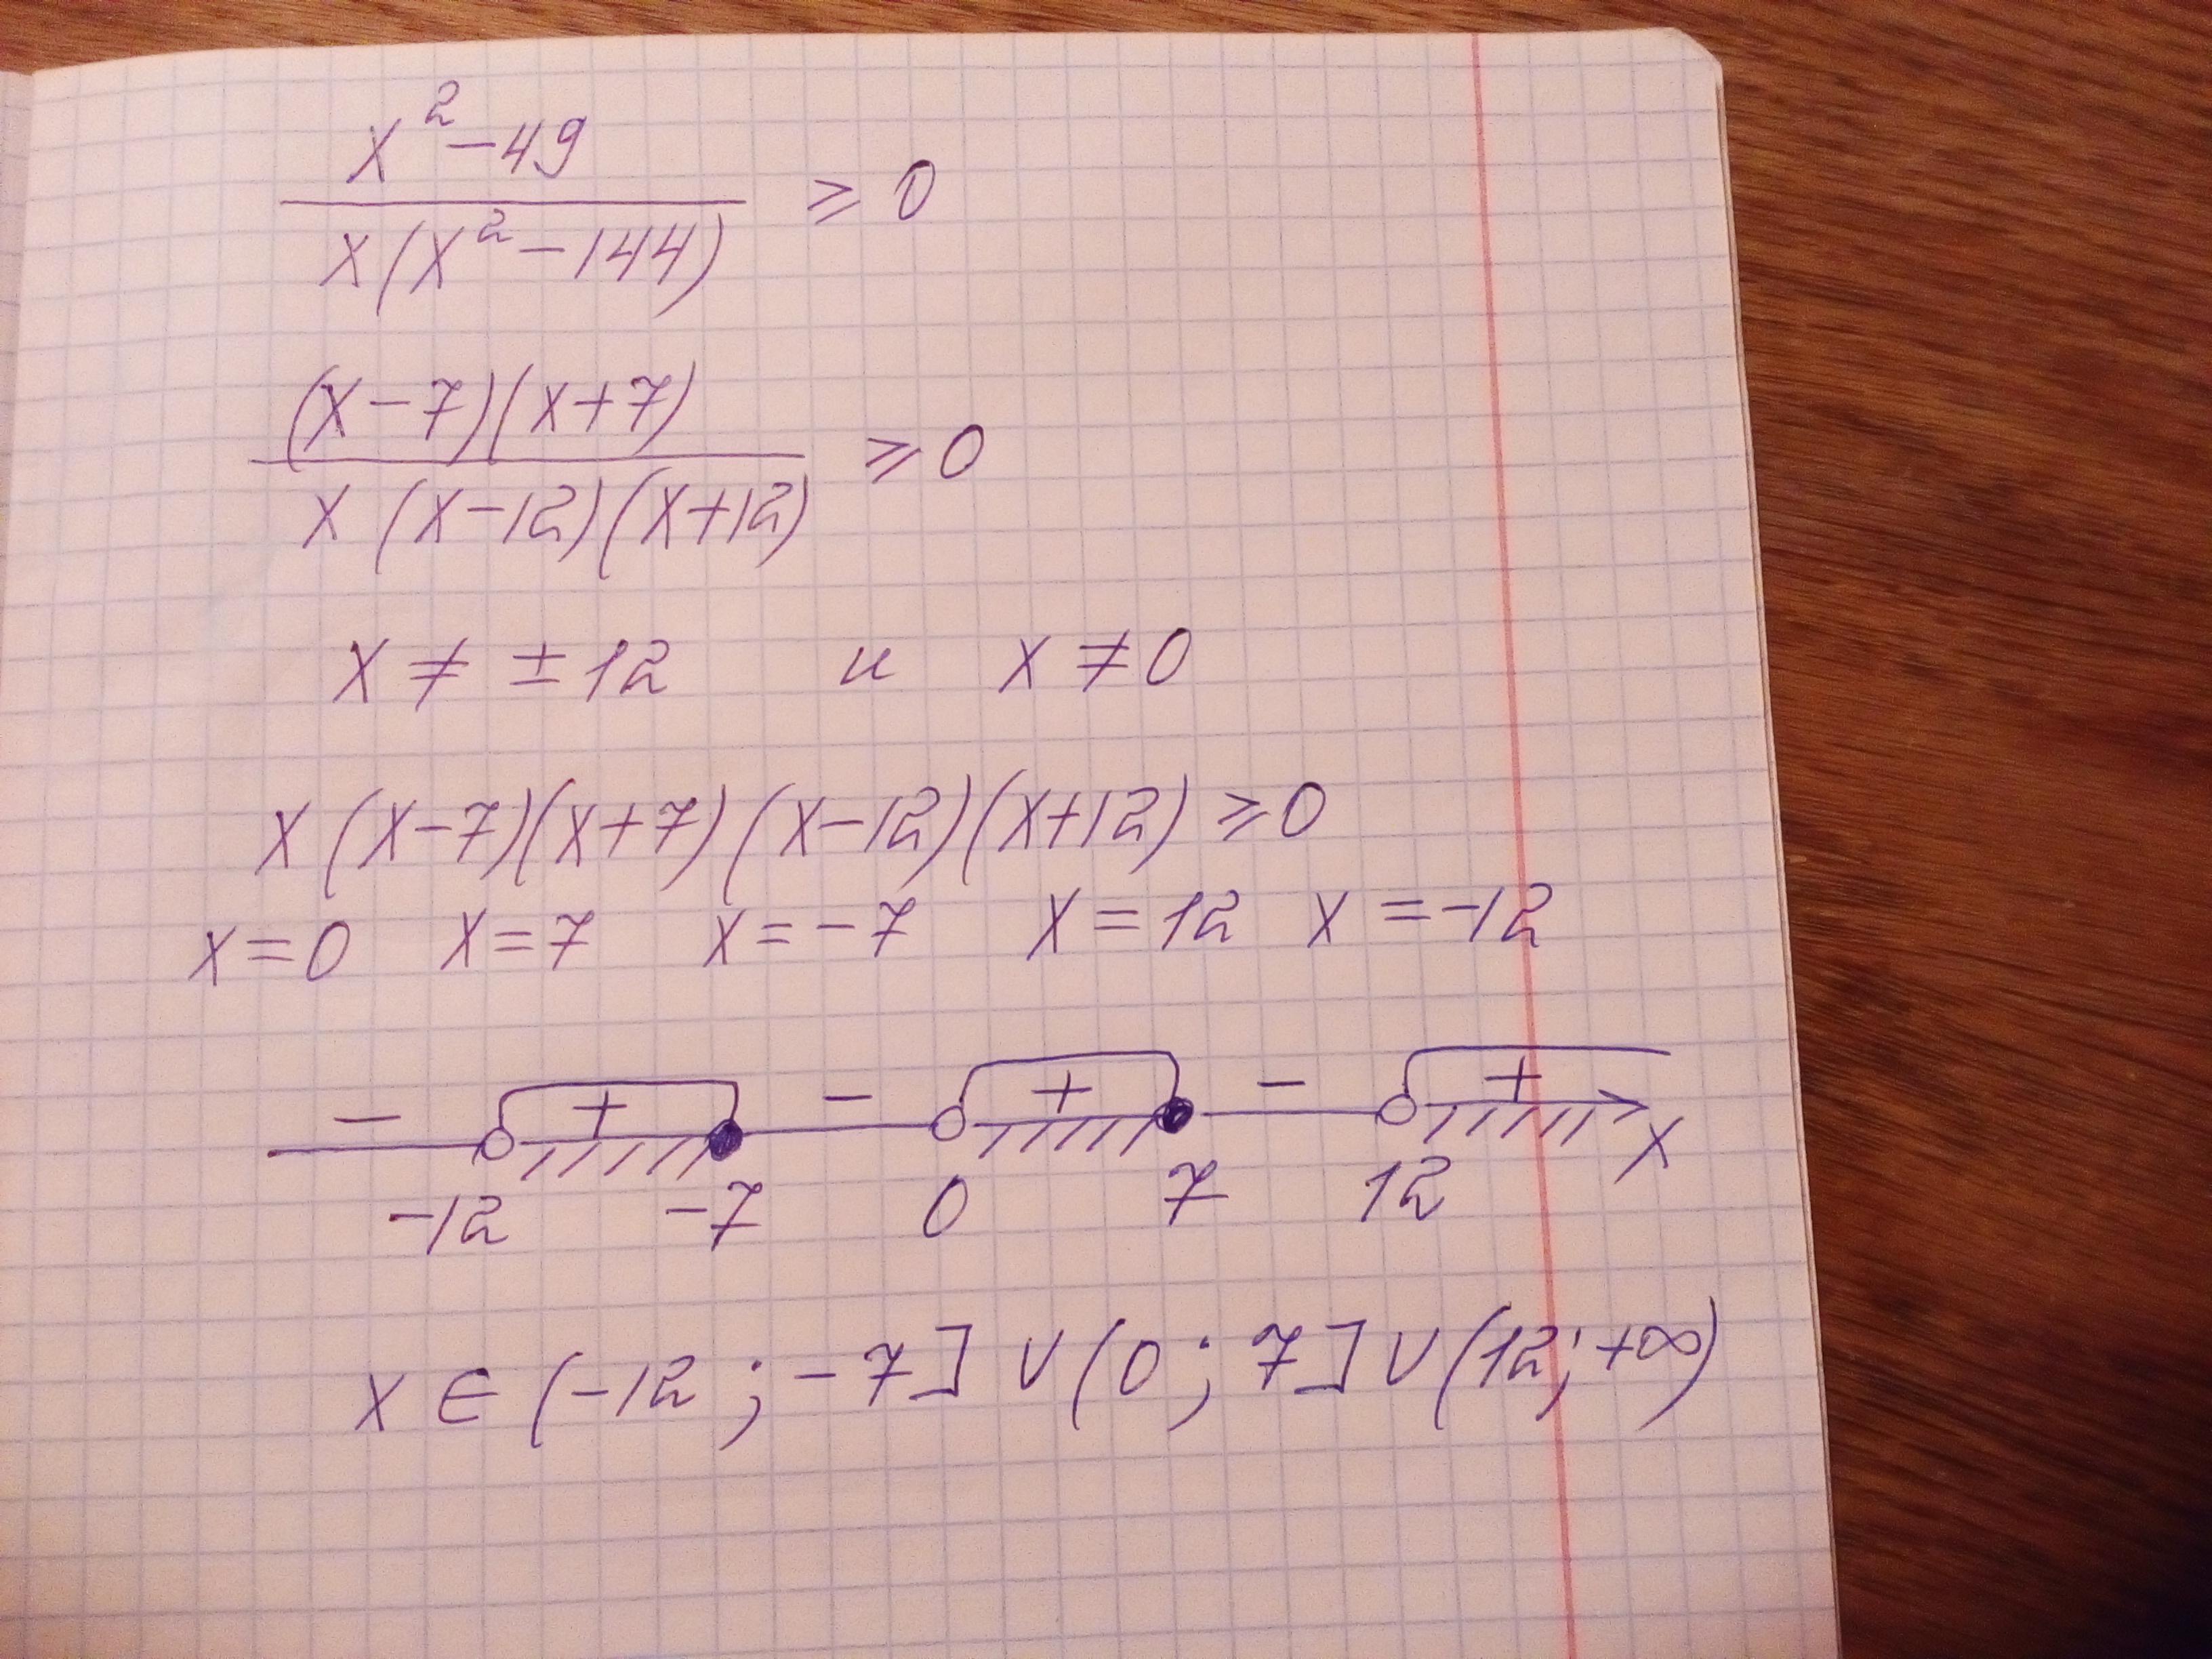 x² - 49
x(x² - 144) ⩾ 0
(x - 7)(x + 7)
x (x - 12)(x + 12) ⩾ 0
x ≠ ± 12 и x ≠ 0
x (x - 7)(x + 7)(x - 12)(x + 12) ⩾ 0
x = 0 x = 7 x = - 7 x = 12 x = -12
- + - + - +
-12 -7 0 7 12 x
x ∈ (-12 ; - 7] ∪ (0 ; 7] ∪ (12; +∞)